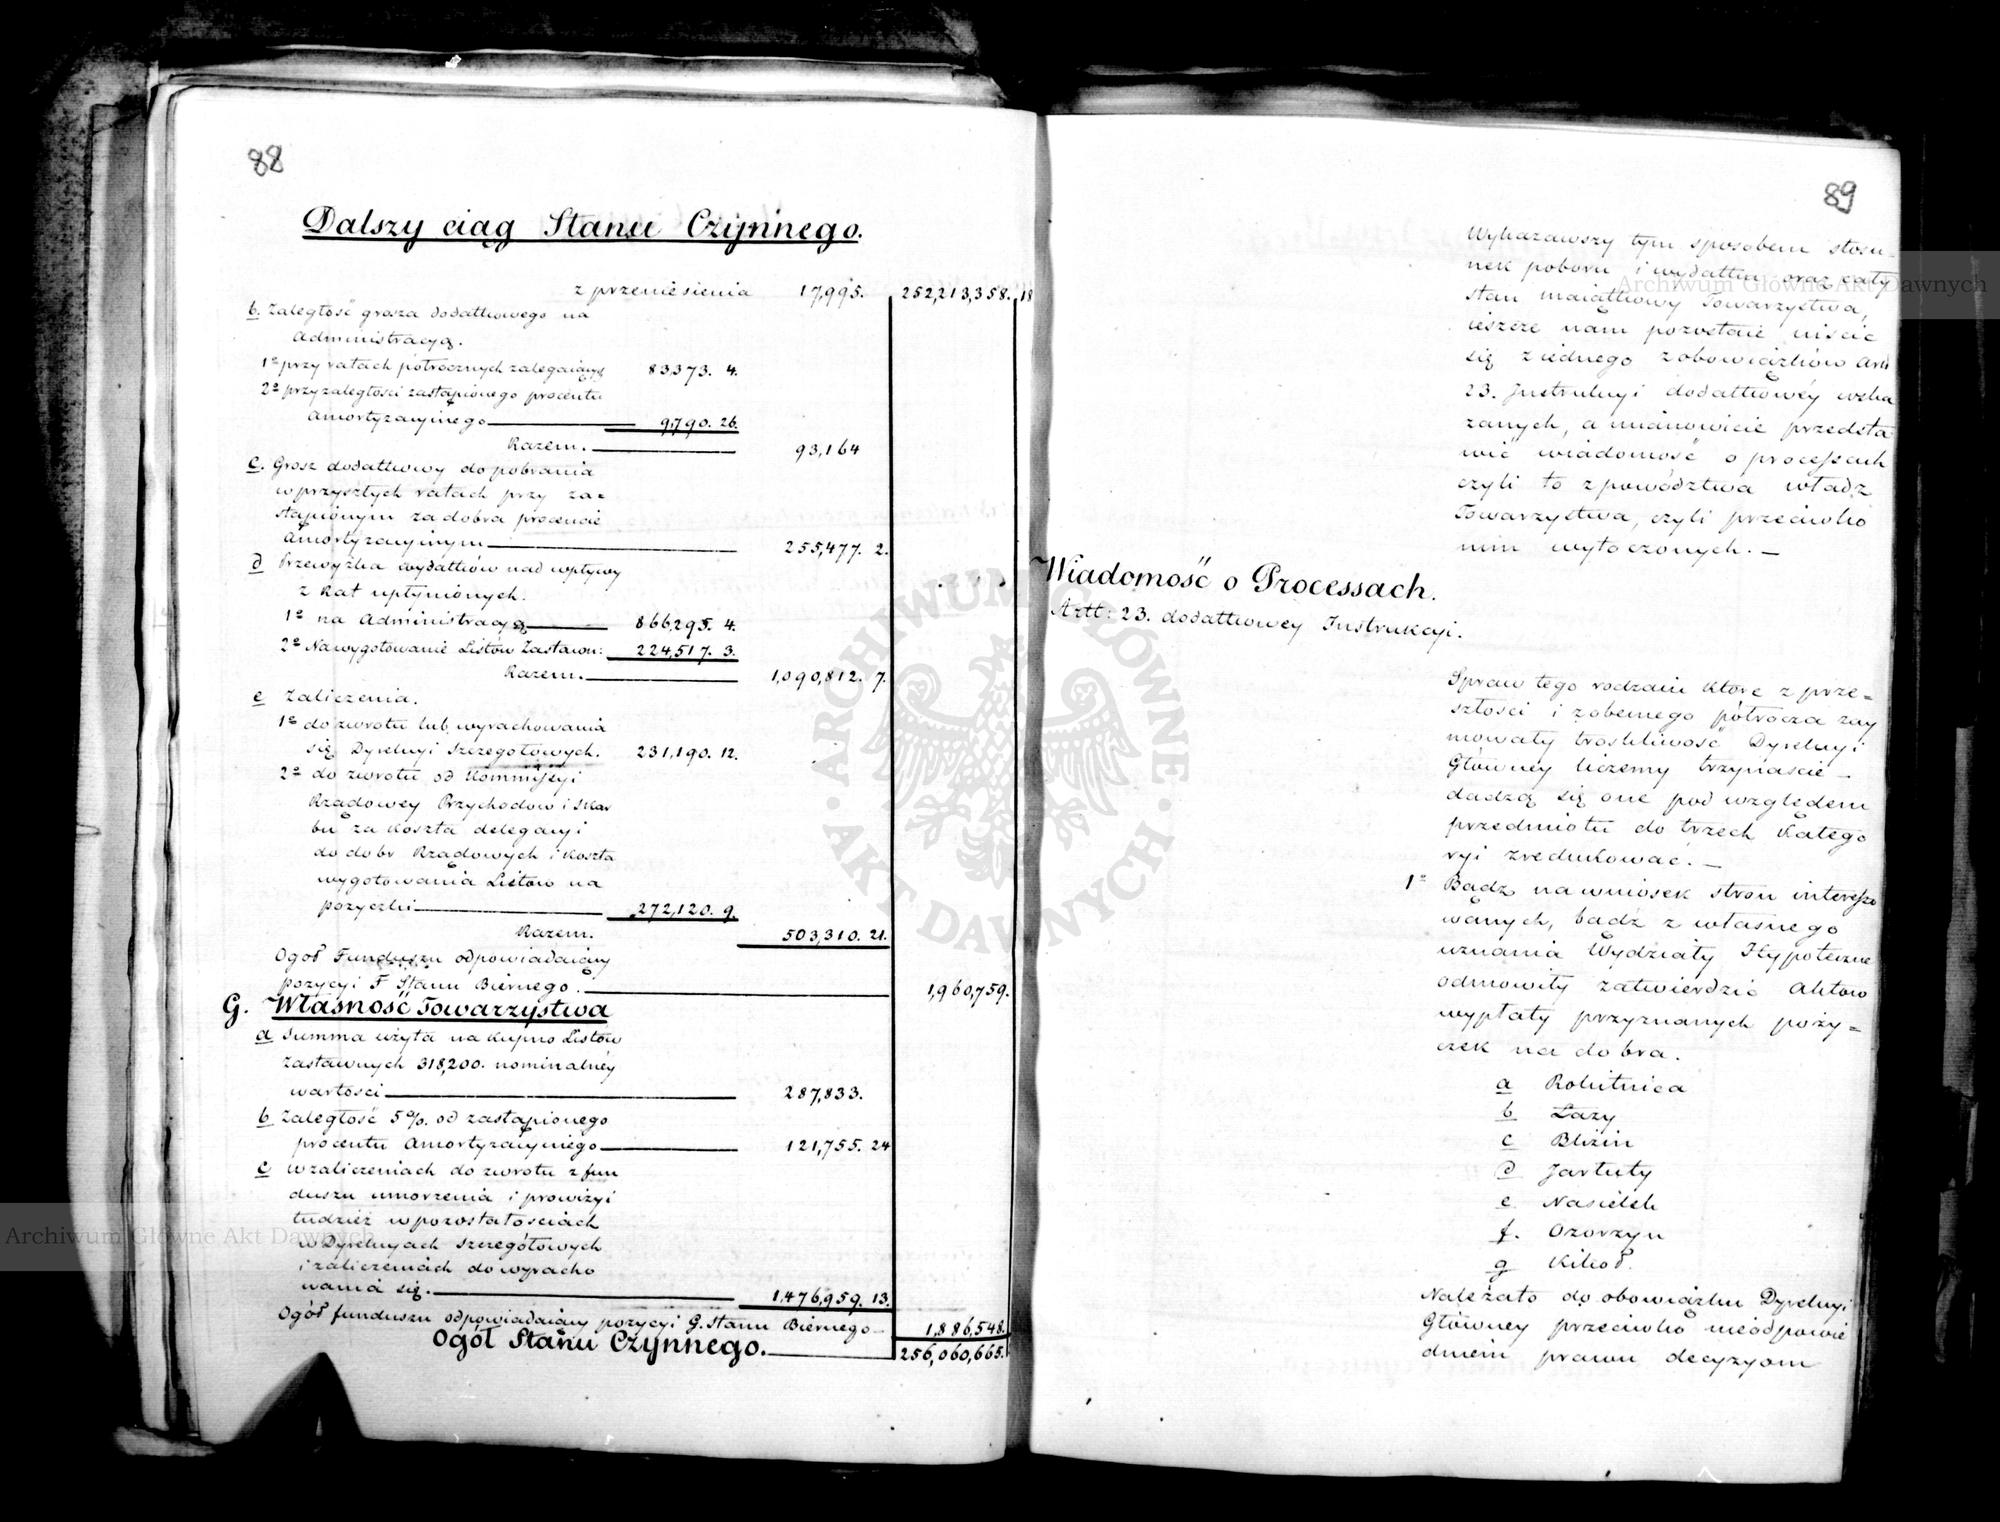 88
Dalszy ciąg Stanu Czynnego.
z przeniesienia 17,995. 252,213,358. 18
b. Zaległość grosza dodatkowego na
Administracyą.
1º przy ratach półrocznych zalegaiący 83373. 4.
2º przy zaległości zastąpionego procentu
Amortyzacyinego 9,790. 26.
Razem. 93,164
c. Grosz dodatkowy do pobrania
w przyszłych ratach przy za=
stąpionym za dobra procencie
Amortyzacyinym 255,477. 2.
d Przewyżka wydatków nad wpływy
z Rat upłynionych.
1º na Administracyą 866,295. 4.
2º Na wygotowanie Listów Zastawn: 224,517. 3.
Razem. 1,090,812. 7.
e Zaliczenia.
1º do zwrotu lub wyrachowania
się Dyrekcyi Szczegółowych. 231,190. 12.
2º do zwrotu od Kommissyi
Rządowey Przychodow i Skar
bu za koszta delegacyi
do dobr Rządowych i koszta
wygotowania Listow na
pożyczki 272,120. 9.
Razem. 503,310. 21.
Ogoł Funduszu odpowiadaiący
pozycyi F Stanu Biernego. 1,960,759.
G. Własność Towarzystwa
a Summa użyta na kupno Listów
zastawnych 318,200. nominalnéy
wartości 287,833.
b Zaległość 5%. od zastąpionego
procentu Amortyzacyinego 121,755. 24
c w zaliczeniach do zwrotu z fun
duszu umorzenia i prowizyi
tudzież w pozostałościach
w Dyrekcyach Szczegółowych
i zaliczeniach do wyracho
wania się. 1,476,959. 13.
Ogół funduszu odpowiadaiący pozycyi G. Stanu Biernego 1,886,548.
Ogół Stanu Czynnego. 256,060,665.
89
Wykazawszy tym sposobem stosu-
nek poboru i wydatku oraz cały
stan maiątkowy Towarzystwa,
ieszcze nam pozostaie uiścić
się z iednego z obowiązków Artt
23. Instrukcyi dodatkowéy wska
zanych, a mianowicie przedsta
wić wiadomość o processach
czyli to z powództwa władz
Towarzystwa, czyli przeciwko
nim wytoczonych. —
Wiadomość o Processach.
Artt: 23. dodatkowey Instrukcyi.
Spraw tego rodzaiu które z prze=
szłości i z obecnego półrocza zay
mowały troskliwość Dyrekcyi
Główney liczemy trzynaście —
dadzą się one pod względem
przedmiotu do trzech Katego
ryi zredukować. —
1º Bądź na wniosek stron interesso
wanych, bądź z własnego
uznania Wydziały Hypoteczne
odmowiły zatwierdzić Aktow
wypłaty przyznanych poży=
czek na dobra.
a Rokitnica
b Łazy
c Bliżin
d Jartuty
e Nasielsk
f. Ozorzyn
g Kikoł.
Należało do obowiązku Dyrekcyi
Główney przeciwko nieodpowie
dniem prawu decyzyom
ARCHIWUM GŁÓWNE
AKT DAWNYCH
Archiwum Główne Akt Dawnych
Archiwum Główne Akt Dawnych